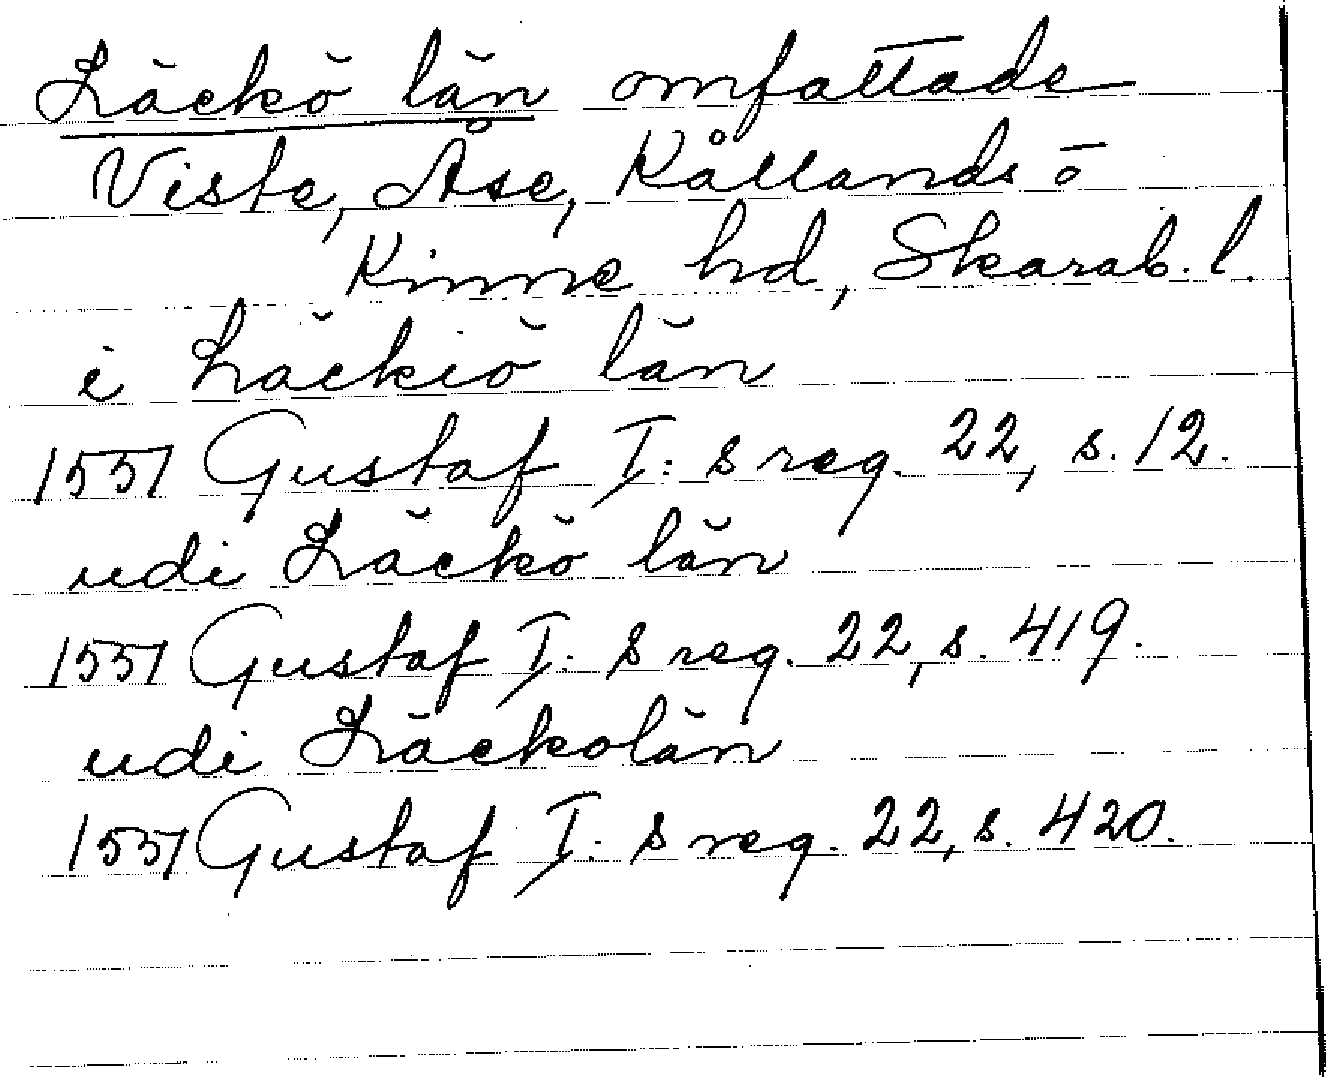 Läckö län omfattade
Viste, Åse, Kållands o
Kinne hd, Skarab. l.
i Läckiö län
1551 Gustaf I: s reg. 22, s. 12.
udi Läckö län
1551 Gustaf I: s reg. 22, s. 419.
udi Läckolän
1551 Gustaf I: s reg. 22, s. 420.